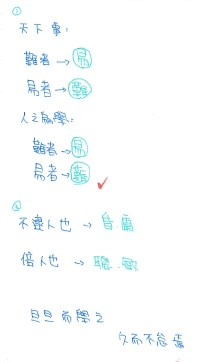 ①
天下事:
難者→易
易者→難
人之為學:
難者→易
易者→難
②
不逮人也 → 昏.庸
倍人也 → 聰.敏
旦旦而學之
久而不怠焉